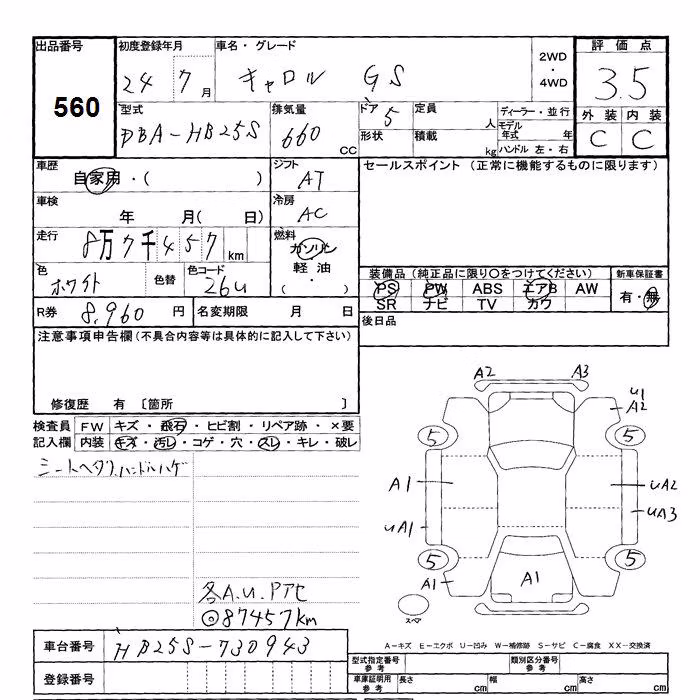 出品番号 560
初度登録年月 24 7月
車名・グレード キャロル GS
2WD・4WD
評価点 3.5
外装 内装
C C
型式 DBA-HB25S
排気量 660 CC
ドア 5
形状
定員 人
積載 kg
ディーラー・並行
モデル年式 年
ハンドル 左・右
車歴 自家用・( )
シフト AT
セールスポイント (正常に機能するものに限ります)
車検 年 月( 日)
冷房 AC
走行 8万7千457km
燃料 ガソリン
軽油・( )
色 ホワイト 色替
色コード 26U
装備品 (純正品に限り○をつけてください)
PS PW ABS エアB AW
SR ナビ TV カワ
新車保証書
有・無
R券 8,960円
名変期限 月 日
後日品
注意事項申告欄(不具合内容等は具体的に記入して下さい)
修復歴 有 〔箇所 〕
検査員記入欄
FW キズ・飛石・ヒビ割・リペア跡・×要
内装 キズ・汚レ・コゲ・穴・スレ・キレ・破レ
シートヘタリ、ハンドルハゲ
A2 A3
U1
A2
5 5
A1 UA2
UA1 UA3
5 5
A1 A1
スペア
各A.U.Pアセ
◎87457km
車台番号 HB25S-730943
A-キズ E-エクボ U-凹み W-補修跡 S-サビ C-腐食 XX-交換済
登録番号
型式指定番号 参考 類別区分番号 参考
車庫証明用 参考 長さ cm 幅 cm 高さ cm